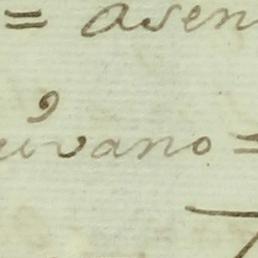 = asen
uivano =